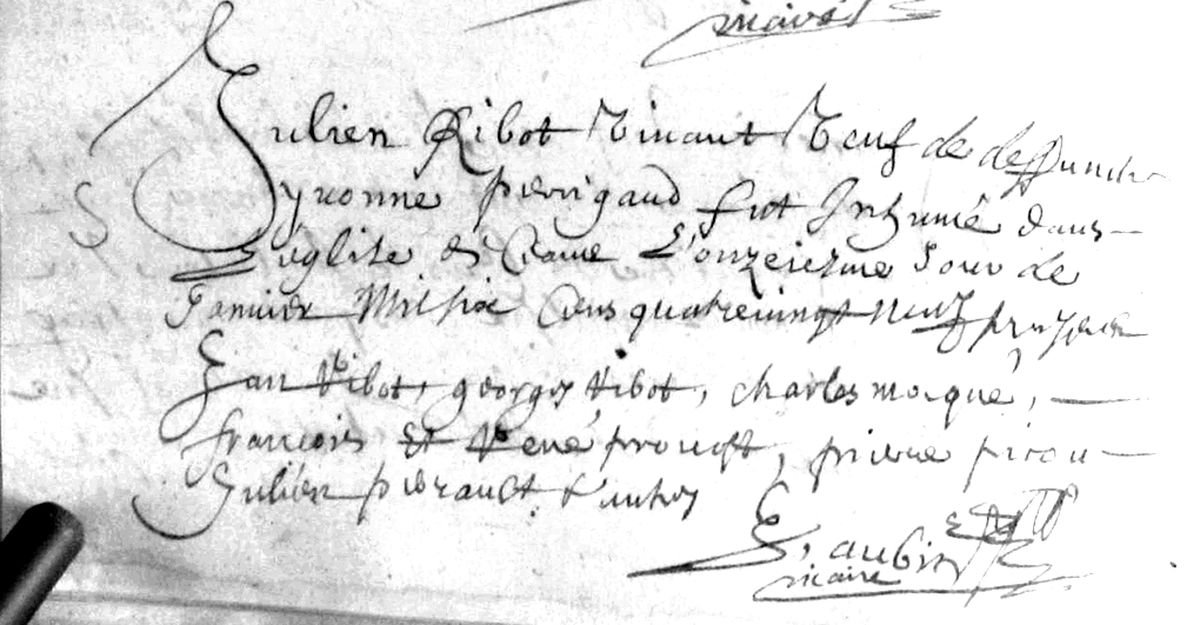 vicaire
Julien Ribot vivant veuf de deffuncte
yvonne perrigaud fut Inhumé dans
L'église de Craue L'onzeiesme Jour de
Janvier Mil six Cens quatrevingt neuf presens
Jan Ribot, georges Ribot, charles maqué,
francois Et René proust, pierre picou
Julien pierault & autres
E, aubin
vicaire